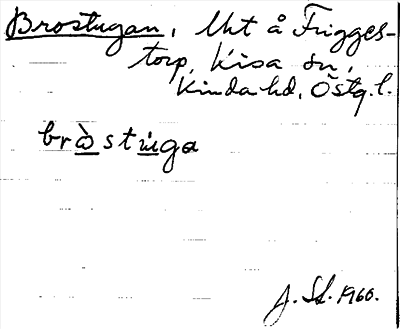 Brostugan, Uht å Frigges-
torp, Kisa sn,
Kinda hd, Östg. l.
bròstùga
J. Sd. 1960.